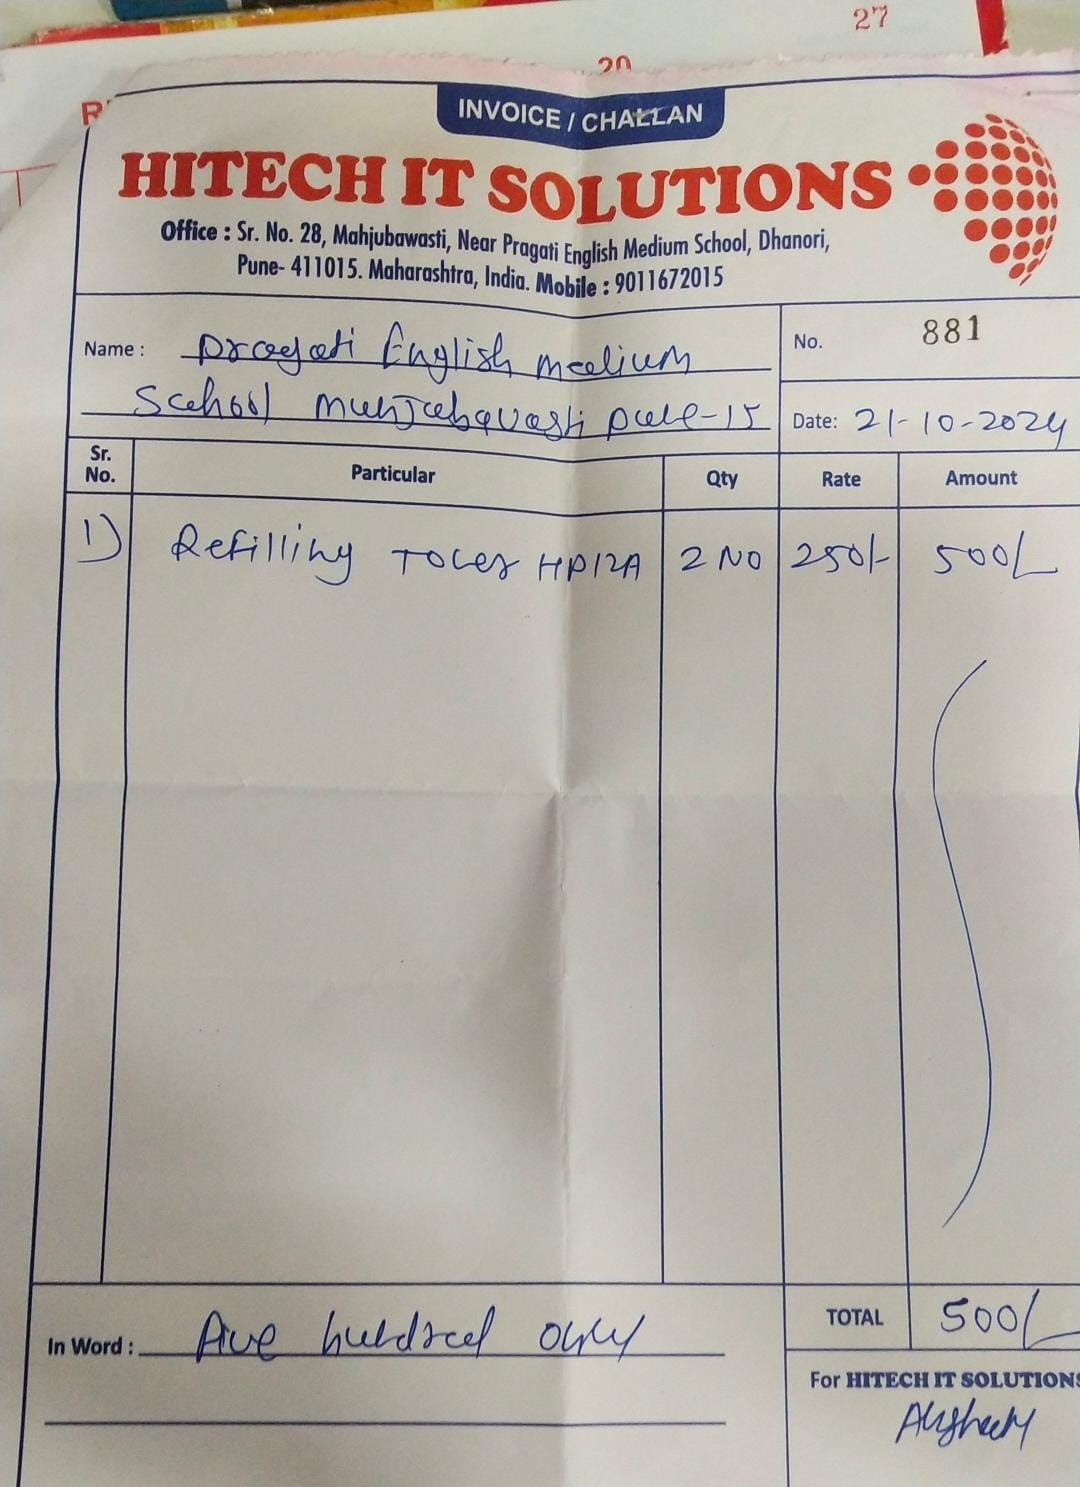 27
20
R
INVOICE / CHALLAN
HITECH IT SOLUTIONS
Office : Sr. No. 28, Mahjubawasti, Near Pragati English Medium School, Dhanori,
Pune- 411015. Maharashtra, India. Mobile : 9011672015
Name : Pragati English medium
School Muhjabavasti pune-15
No. 881
Date: 21-10-2024
Sr. No. Particular Qty Rate Amount
1) Refilling Toner HP12A 2 NO 250/- 500/-
TOTAL 500/-
In Word : Five hundred only
For HITECH IT SOLUTIONS